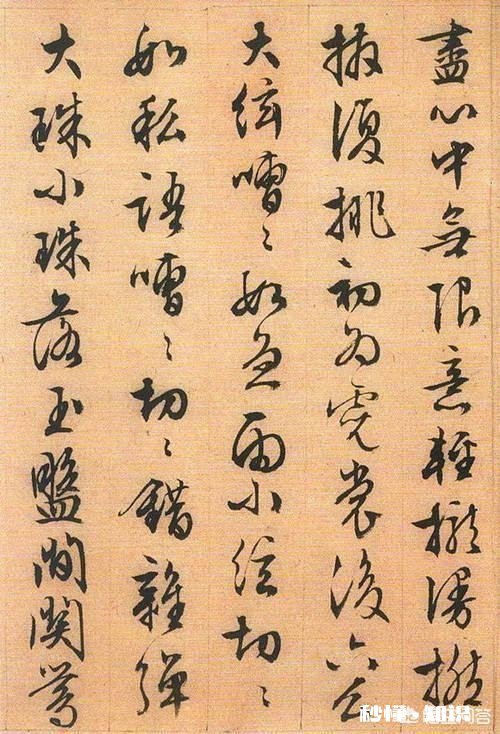 盡心中無限意輕攏慢撚
抹復挑初為霓裳後六幺
大絃嘈〻如急雨小絃切〻
如私語嘈〻切〻錯雜彈
大珠小珠落玉盤間關鶯
秒懂知识
问答